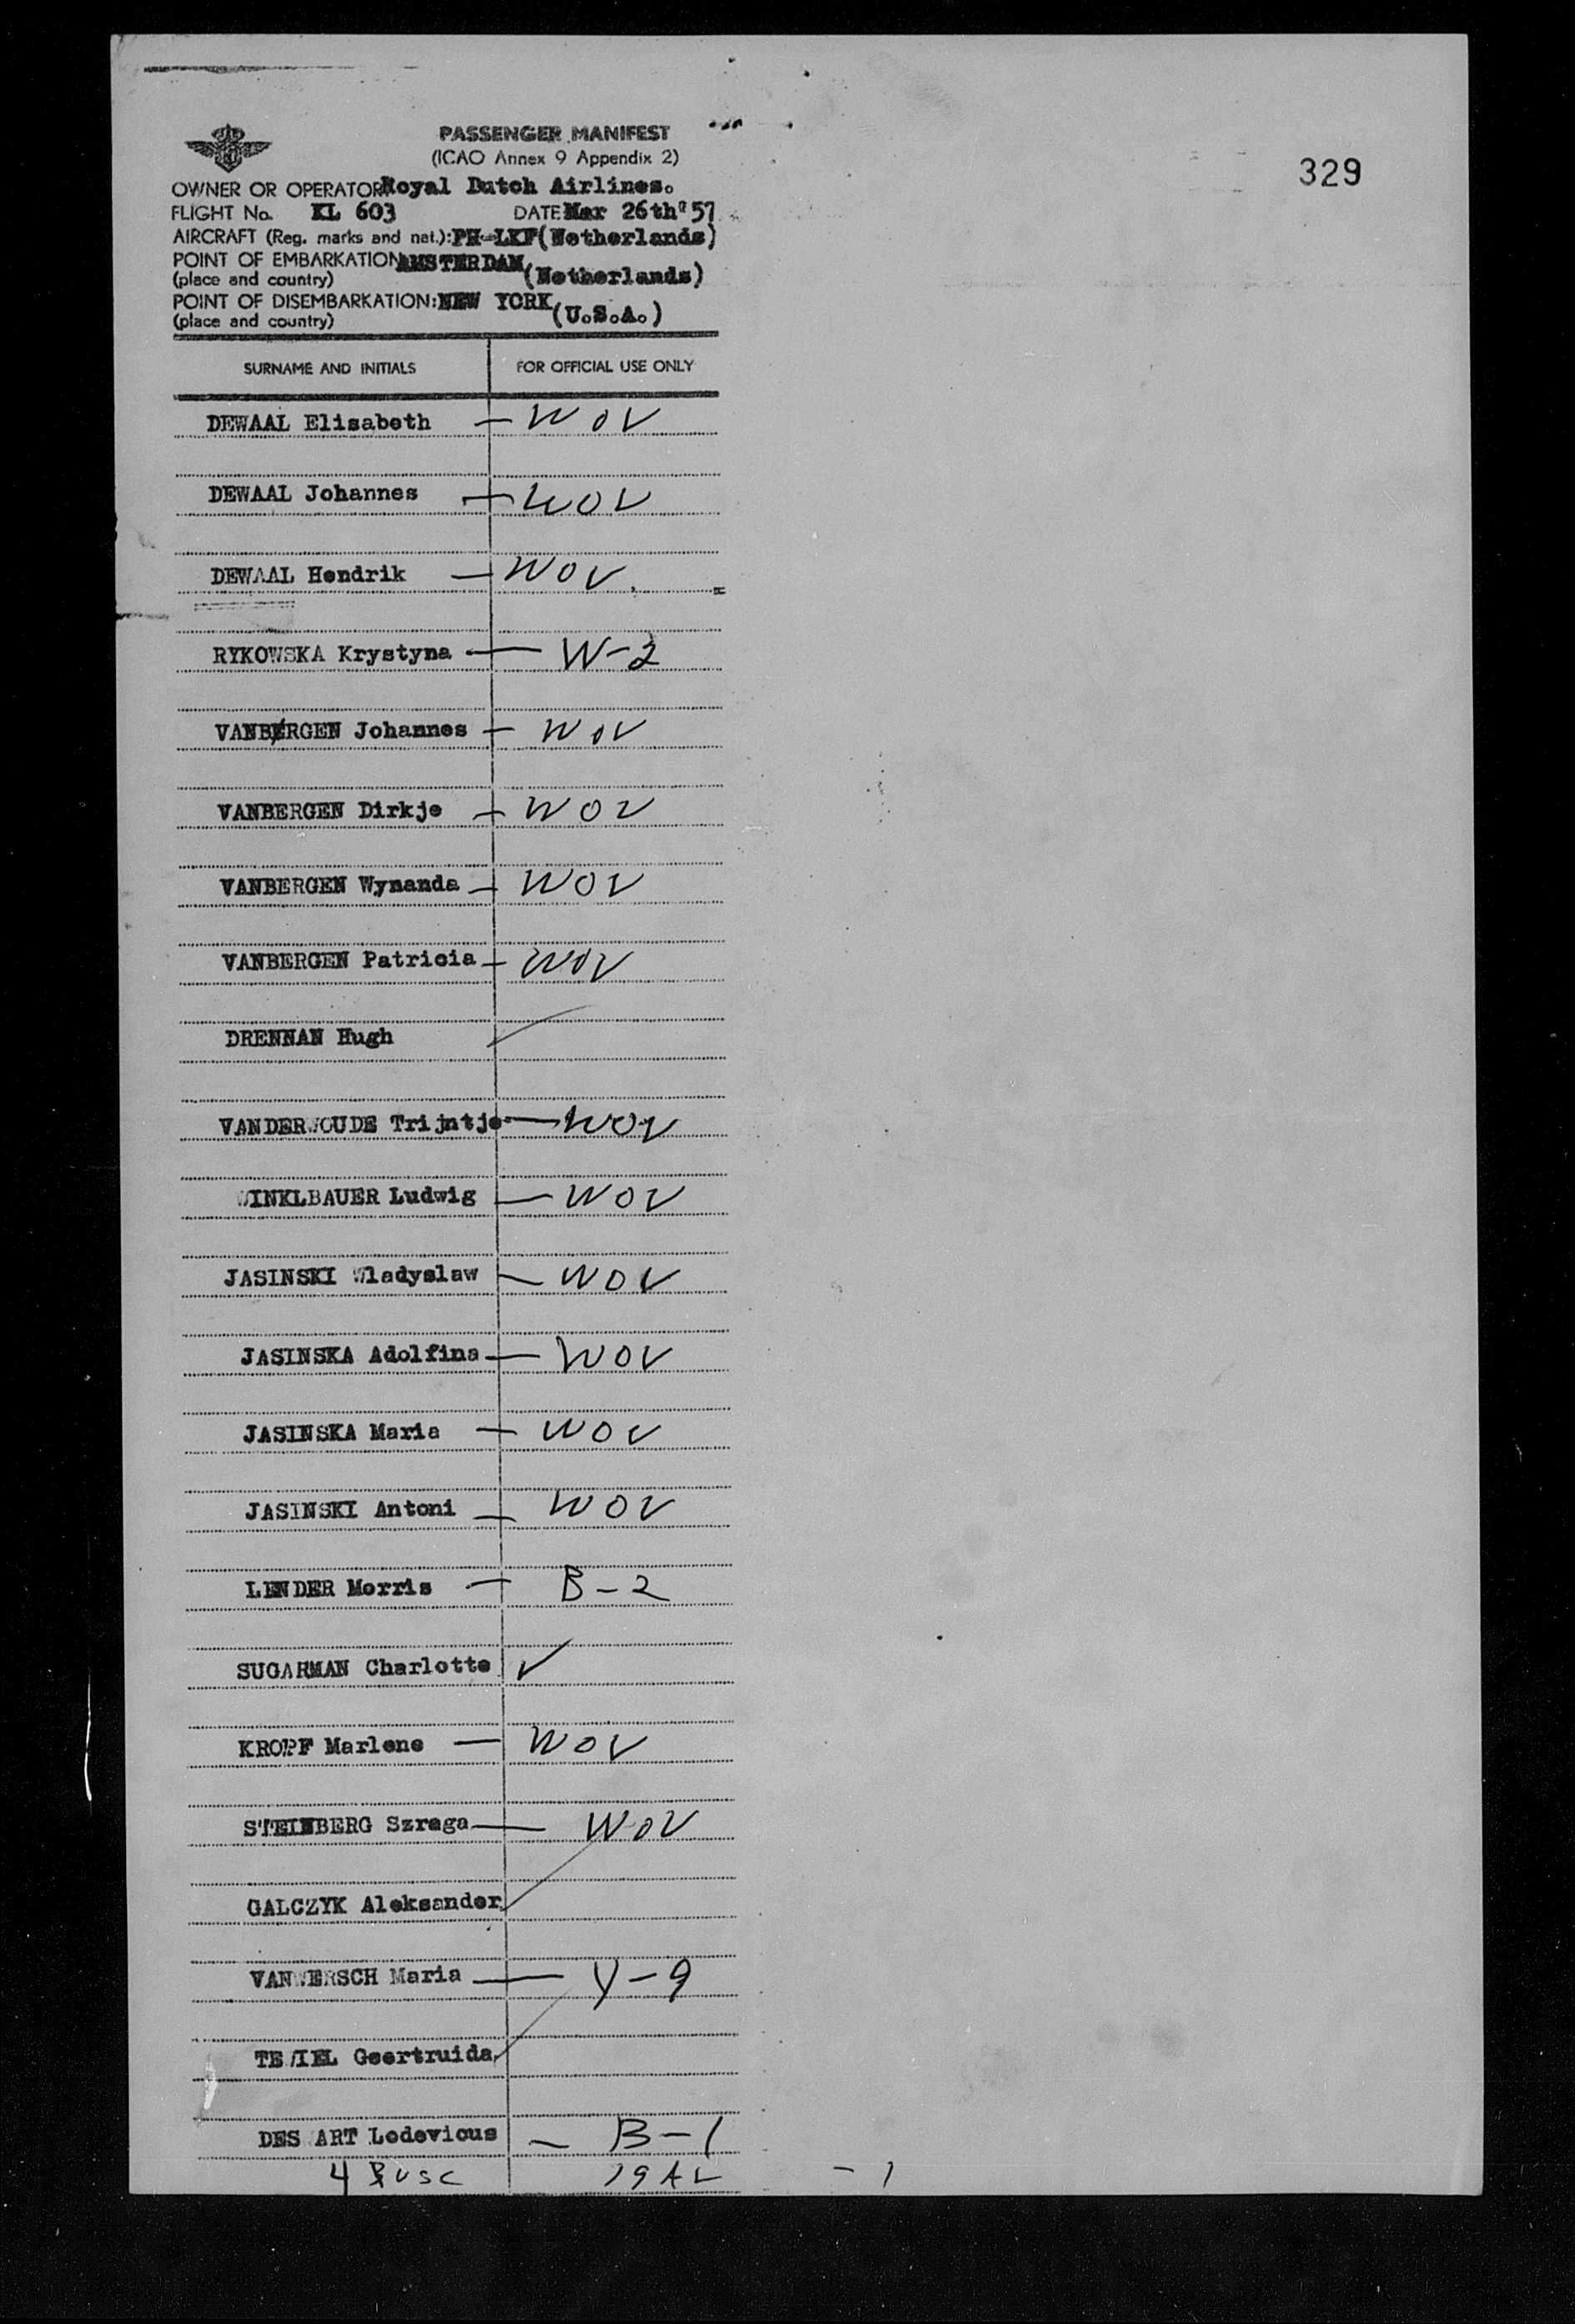 329
PASSENGER MANIFEST
(ICAO Annex 9 Appendix 2)
OWNER OR OPERATOR Royal Dutch Airlines.
FLIGHT No. KL 603 DATE Mar 26th'57
AIRCRAFT (Reg. marks and nat.): PH-LKF (Netherlands)
POINT OF EMBARKATION AMSTERDAM (Netherlands)
(place and country)
POINT OF DISEMBARKATION: NEW YORK (U.S.A.)
(place and country)
SURNAME AND INITIALS FOR OFFICIAL USE ONLY
DEWAAL Elisabeth — WOV
DEWAAL Johannes — WOV
DEWAAL Hendrik — WOV
RYKOWSKA Krystyna — W-2
VANBERGEN Johannes — WOV
VANBERGEN Dirkje — WOV
VANBERGEN Wynanda — WOV
VANBERGEN Patricia — WOV
DRENNAN Hugh
VANDERWOUDE Trijntje — WOV
WINKLBAUER Ludwig — WOV
JASINSKI Wladyslaw — WOV
JASINSKA Adolfina — WOV
JASINSKA Maria — WOV
JASINSKI Antoni — WOV
LENDER Morris — B-2
SUGARMAN Charlotte ✓
KROPF Marlene — WOV
STEINBERG Szraga — WOV
GALCZYK Aleksander
VANWERSCH Maria — Y-9
TEWIEL Geertruida
DESWART Lodevicus — B-1
4 USC 19 AL - 1